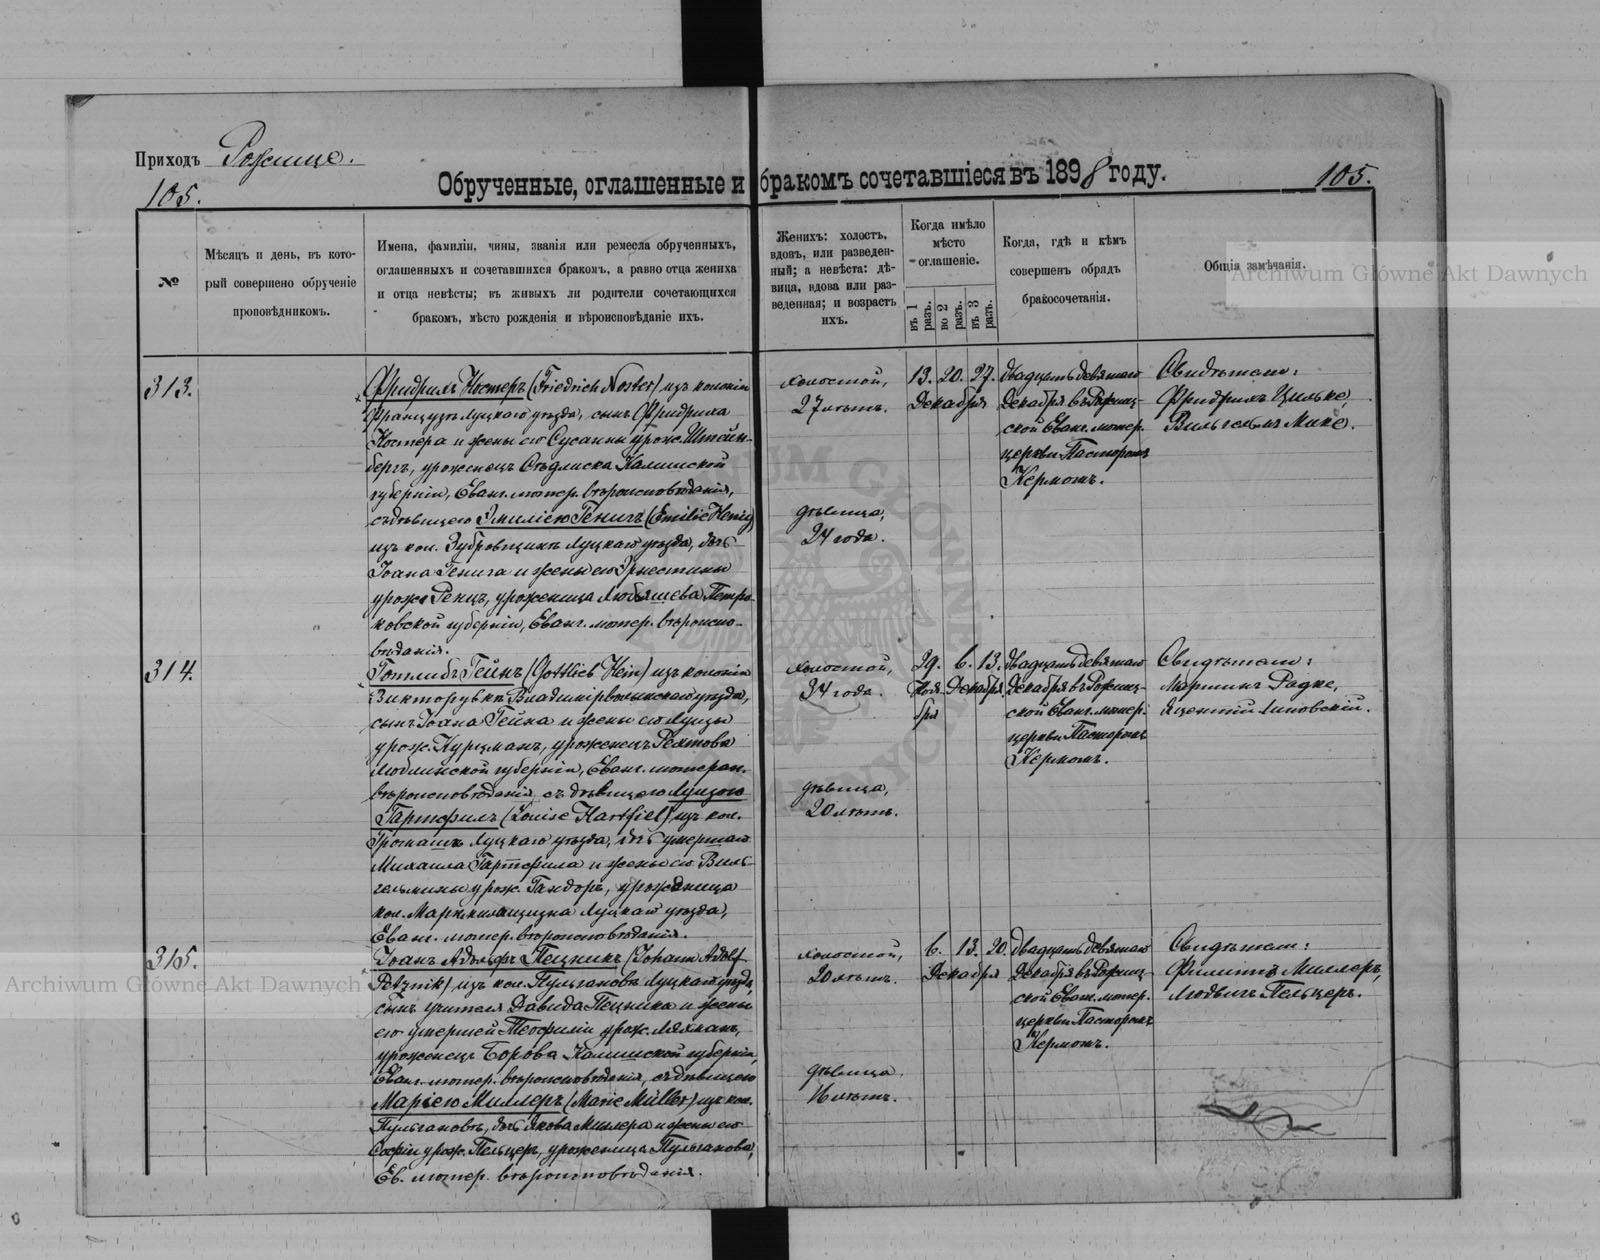 Приходъ Рожище.
105.
Обрученные, оглашенные и бракомъ сочетавшіеся въ 1898 году.
105.
№
Мѣсяцъ и день, въ кото-
рый совершено обрученіе
проповѣдникомъ.
Имена, фамиліи, чины, званія или ремесла обрученныхъ,
оглашенныхъ и сочетавшихся бракомъ, а равно отца жениха
и отца невѣсты; въ живыхъ ли родители сочетающихся
бракомъ, мѣсто рожденія и вѣроисповѣданіе ихъ.
Женихъ: холостъ,
вдовъ, или разведен-
ный; а невѣста: дѣ-
вица, вдова или раз-
веденная; и возрастъ
ихъ.
Когда имѣло
мѣсто
оглашеніе.
въ 1 разъ.
во 2 разъ.
въ 3 разъ.
Когда, гдѣ и кѣмъ
совершенъ обрядъ
бракосочетанія.
Общія замѣчанія.
313.
Фридрихъ Ностеръ (Friedrich Noster) изъ колоніи
Французъ Луцкаго уѣзда, сынъ Фридриха
Ностера и жены его Сусанны урож. Штейн-
бергъ, уроженецъ Калишской
губерніи, Еванг. лютер. вѣроисповѣданія,
съ дѣвицею Эмиліею Генигъ (Emilie Henig)
изъ кол. Зубровщина Луцкаго уѣзда, дочь
Іоана Генига и жены его Эрнестины
урож. Ренцъ, уроженица Петро-
ковской губерніи, Еванг. лютер. вѣроиспо-
вѣданія.
холостой,
27 лѣтъ.
дѣвица,
24 года.
13. 20. 27.
Декабря
двадцать девятаго
Декабря въ Рожищ-
ской Еванг. лютер.
церкви Пасторомъ
Кермомъ.
Свидѣтели:
Фридрихъ Цильке,
Вильгельмъ Мике.
314.
Готлибъ Гейнъ (Gottlieb Hein) изъ колоніи
Викторувкъ Владимірволынскаго уѣзда,
сынъ Іоана Гейна и жены его Луизы
урож. Курцманъ, уроженецъ
Люблинской губерніи, Еванг. лютеран.
вѣроисповѣданія, съ дѣвицею Луизою
Гартфилъ (Louise Hartfiel) изъ кол.
Луцкаго уѣзда, дочь умершаго
Михаила Гартфила и жены его Виль-
гельмины урож. Гандоръ, уроженица
кол. Луцкаго уѣзда,
Еванг. лютер. вѣроисповѣданія.
холостой,
34 года.
дѣвица,
20 лѣтъ.
29. 6. 13.
Ноя- Декабря
бря
двадцать девятаго
Декабря въ Рожищ-
ской Еванг. лютер.
церкви Пасторомъ
Кермомъ.
Свидѣтели:
Мартинъ Радке,
Липовскій.
315.
Іоанъ Адольфъ Пецникъ (Johann Adolf
Petznik) изъ кол. Пульгановъ Луцкаго уѣзда,
сынъ учителя Давида Пецника и жены
его умершей Теофиліи урож. Ляхманъ,
уроженецъ Борова Калишской губерніи,
Еванг. лютер. вѣроисповѣданія, съ дѣвицею
Маріею Миллеръ (Marie Müller) изъ кол.
Пульгановъ, дочь Якова Миллера и жены его
Софіи урож. Пельцеръ, уроженица Пульганова,
Ев. лютер. вѣроисповѣданія.
холостой,
20 лѣтъ.
дѣвица
16 лѣтъ.
6. 13. 20.
Декабря
двадцать девятаго
Декабря въ Рожищ-
ской Еванг. лютер.
церкви Пасторомъ
Кермомъ.
Свидѣтели:
Филиппъ Миллеръ,
Людвигъ Пельцеръ.
Archiwum Główne Akt Dawnych
Archiwum Główne Akt Dawnych